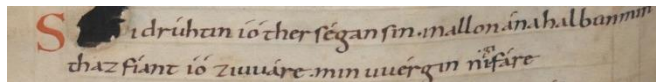 S idruhtin ió ther ségan sin · in allon ána halbun min
thaz fíant ió zuuuáre · min uuérgin ni fáre